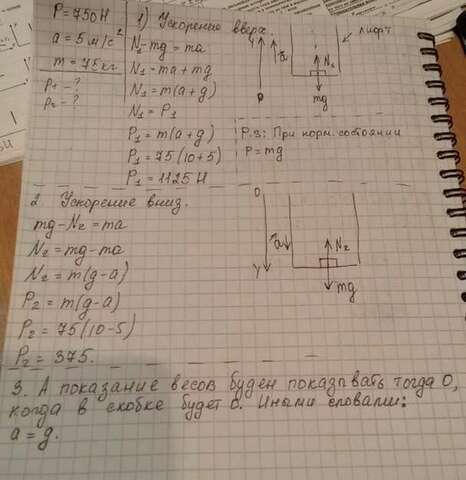 P = 750 Н
a = 5 м/с²
m = 75 кг
P₁ – ?
P₂ – ?
1) Ускорение вверх.
N₁ – mg = ma
N₁ = ma + mg
N₁ = m(a+g)
N₁ = P₁
P₁ = m(a+g)
P₁ = 75(10+5)
P₁ = 1125 Н
y
a
N₁
лифт
mg
0
P.S: При норм. состоянии
P = mg
2. Ускорение вниз.
mg – N₂ = ma
N₂ = mg – ma
N₂ = m(g-a)
P₂ = m(g-a)
P₂ = 75(10-5)
P₂ = 375.
0
a
N₂
y
mg
3. А показание весов буден показывать тогда 0,
когда в скобке будет 0. Иными словами:
a = g.